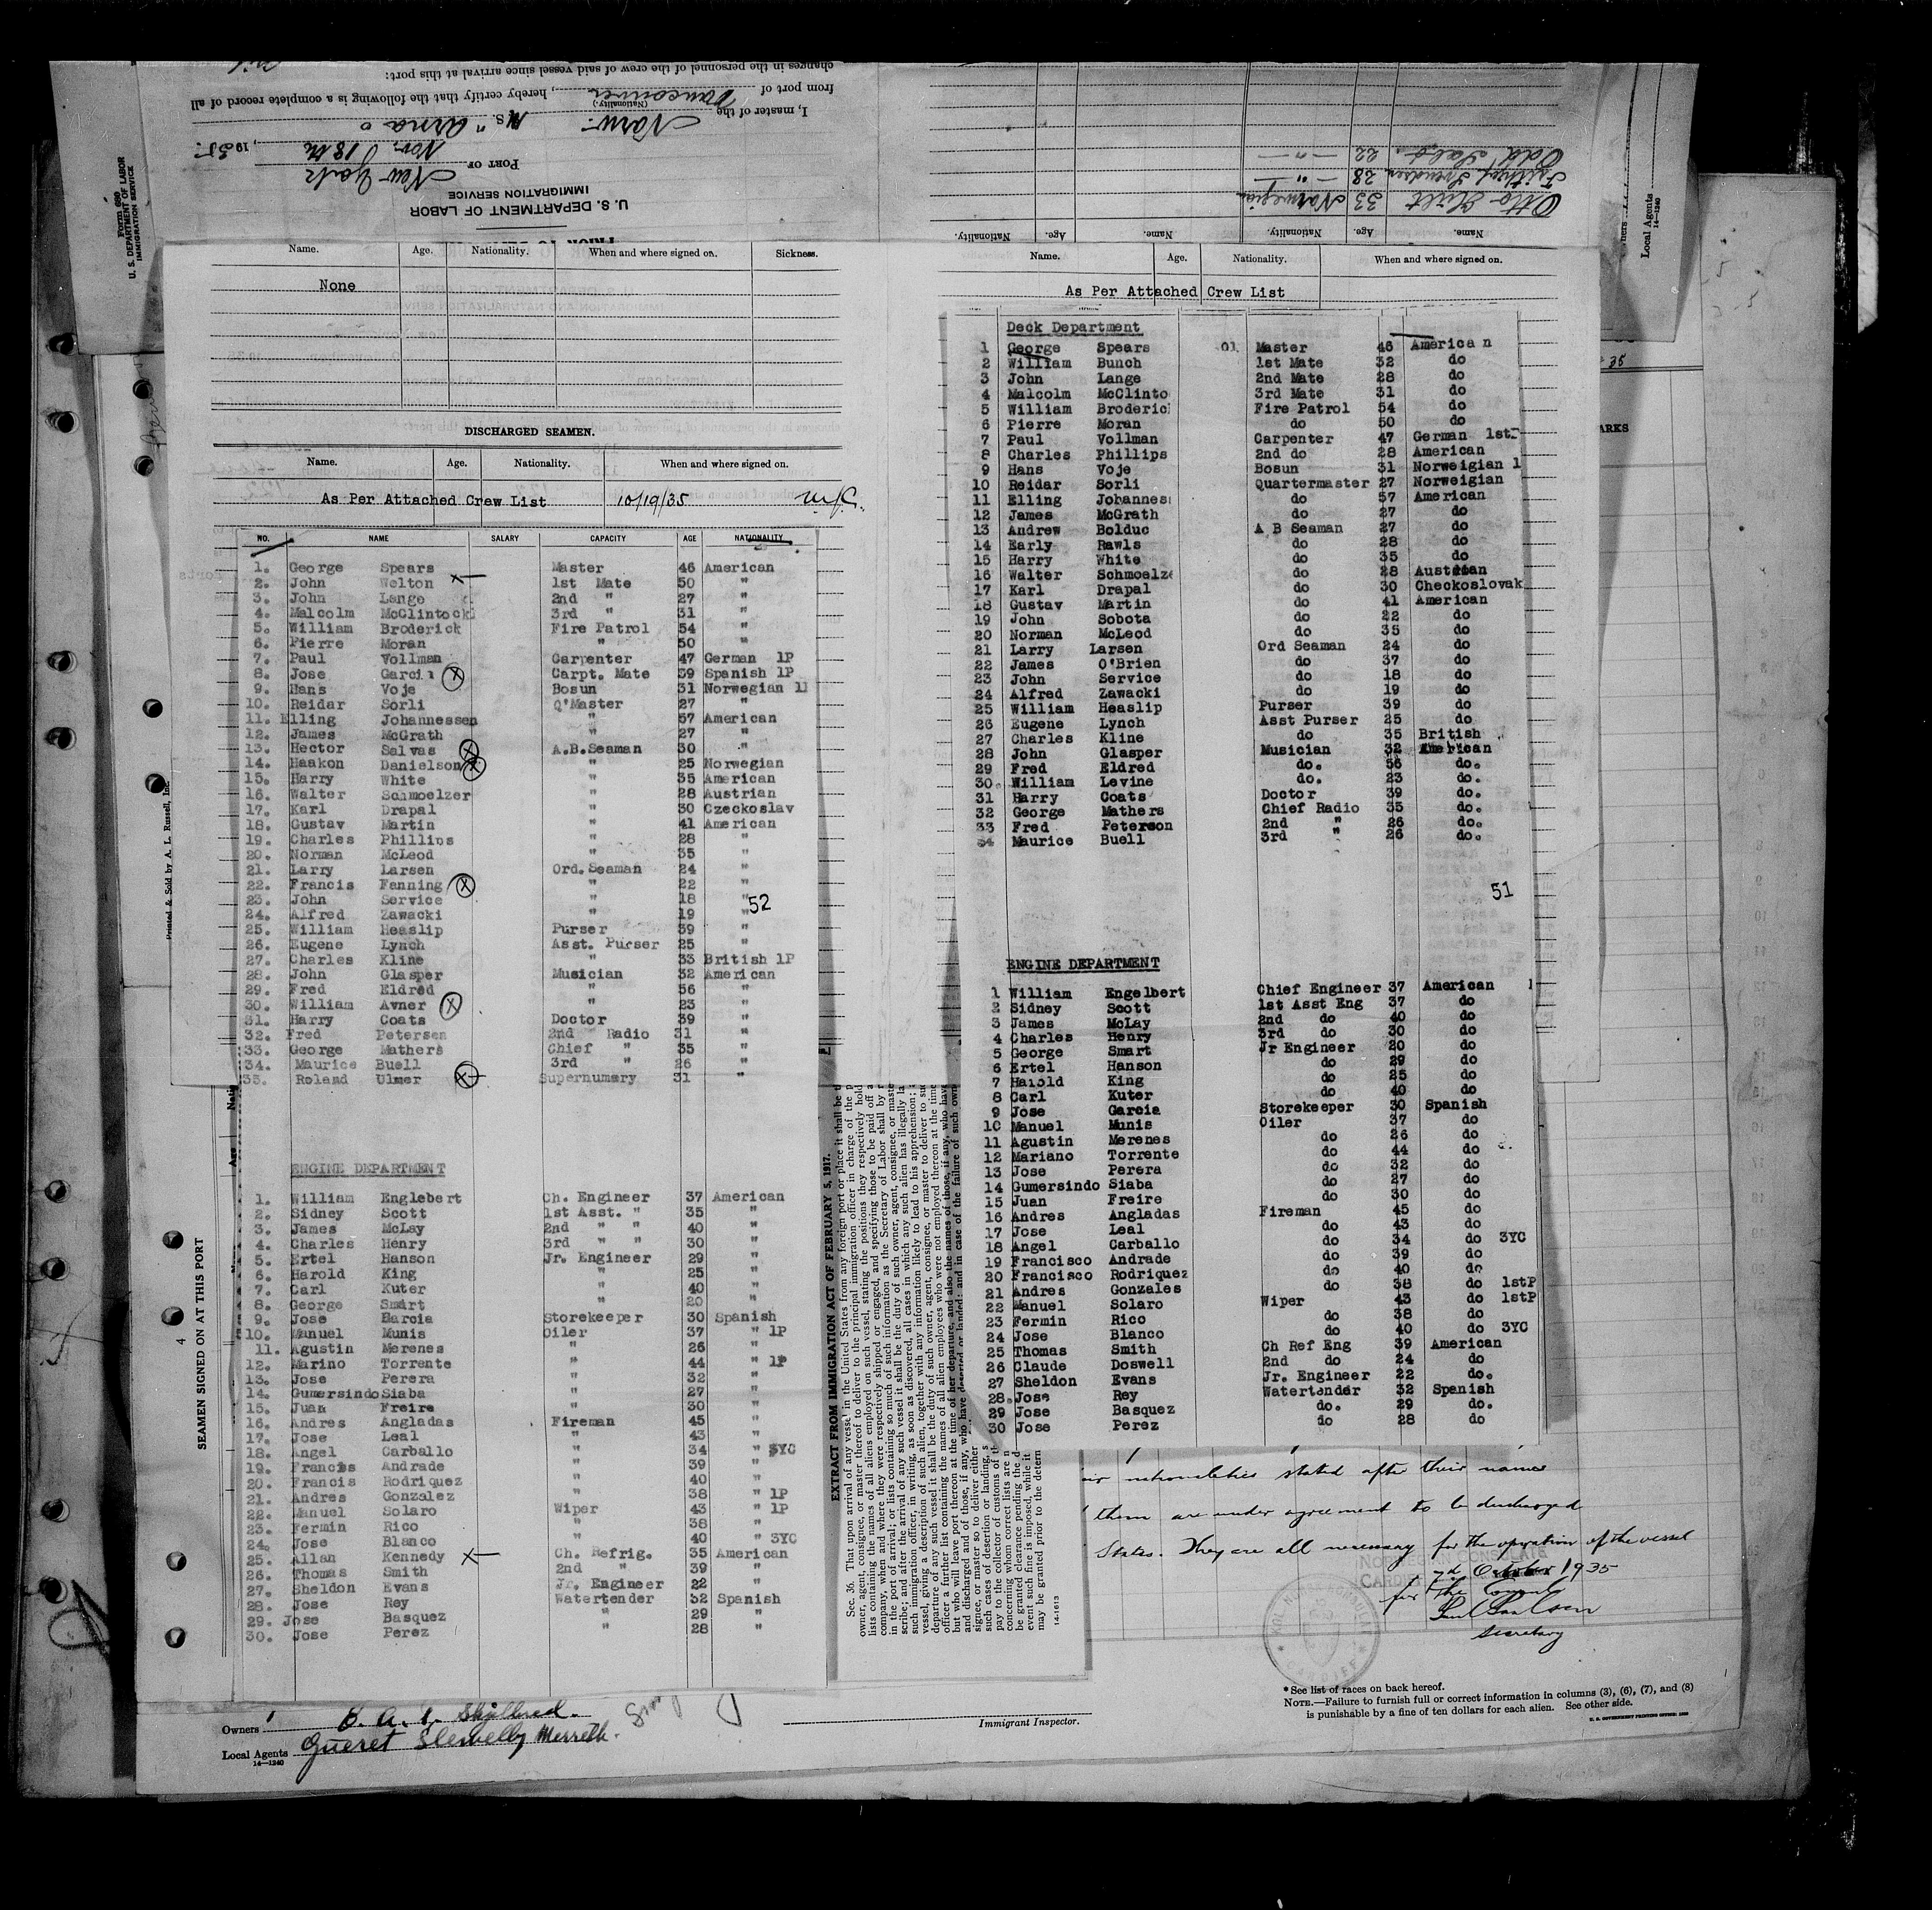 Form 689
U. S. DEPARTMENT OF LABOR
IMMIGRATION SERVICE
U. S. DEPARTMENT OF LABOR
IMMIGRATION SERVICE
PORT OF New York
Nov. 18th, 1935.
M.S. "Arna"
I, master of the Norw.
(Nationality.)
from port of Vancouver, hereby certify that the following is a complete record of all
changes in the personnel of the crew of said vessel since arrival at this port:
Name. Age. Nationality. Name. Age. Nationality.
Otto Hult 33 Norwegian
Frithjof Svendsen 28 — " —
Odd 22 — " —
Local Agents
14—1240
Name. Age. Nationality. When and where signed on. Sickness.
None
DISCHARGED SEAMEN.
Name. Age. Nationality. When and where signed on.
As Per Attached Crew List 10/19/35
NO. NAME SALARY CAPACITY AGE NATIONALITY
1. George Spears Master 46 American
2. John Welton X 1st Mate 50 "
3. John Lange 2nd " 27 "
4. Malcolm McClintock 3rd " 31 "
5. William Broderick Fire Patrol 54 "
6. Pierre Moran " 50 "
7. Paul Vollman Carpenter 47 German 1P
8. Jose Garcia X Carpt. Mate 39 Spanish 1P
9. Hans Voje Bosun 31 Norwegian 1
10. Reidar Sorli Q'Master 27 "
11. Elling Johannessen " 57 American
12. James McGrath " 27 "
13. Hector Selvas X A.B.Seaman 30 "
14. Haakon Danielson X " 25 Norwegian
15. Harry White " 35 American
16. Walter Schmoelzer " 28 Austrian
17. Karl Drapal " 30 Czeckoslav
18. Gustav Martin " 41 American
19. Charles Phillips " 28 "
20. Norman McLeod " 35 "
21. Larry Larsen Ord. Seaman 24 "
22. Francis Fanning X " 22 "
23. John Service " 18 "
52
24. Alfred Zawacki " 19 "
25. William Heaslip Purser 39 "
26. Eugene Lynch Asst. Purser 25 "
27. Charles Kline " 33 British 1P
28. John Glasper Musician 32 American
29. Fred Eldred " 56 "
30. William Avner X " 23 "
31. Harry Coats Doctor 39 "
32. Fred Petersen 2nd Radio 31 "
33. George Mathers Chief " 35 "
34. Maurice Buell 3rd " 26 "
35. Roland Ulmer X Supernumary 31 "
ENGINE DEPARTMENT
1. William Englebert Ch. Engineer 37 American
2. Sidney Scott 1st Asst. " 35 "
3. James McLay 2nd " " 40 "
4. Charles Henry 3rd " " 30 "
5. Ertel Hanson Jr. Engineer 29 "
6. Harold King " 25 "
7. Carl Kuter " 40 "
8. George Smart " 20 "
9. Jose Barcia Storekeeper 30 Spanish
10. Manuel Munis Oiler 37 " 1P
11. Agustin Merenes " 26 "
12. Marino Torrente " 44 " 1P
13. Jose Perera " 32 "
14. Gumersindo Siaba " 27 "
15. Juan Freire " 30 "
16. Andres Angladas Fireman 45 "
17. Jose Leal " 43 "
18. Angel Carballo " 34 " 3YC
19. Francis Andrade " 39 "
20. Francis Rodriquez " 40 "
21. Andres Gonzalez " 38 " 1P
22. Manuel Solaro Wiper 43 " 1P
23. Fermin Rico " 38 "
24. Jose Blanco " 40 " 3YC
25. Allan Kennedy X Ch. Refrig. 35 American
26. Thomas Smith 2nd " 39 "
27. Sheldon Evans Jr. Engineer 22 "
28. Jose Rey Watertender 32 Spanish
29. Jose Basquez " 29 "
30. Jose Perez " 28 "
Name. Age. Nationality. When and where signed on.
As Per Attached Crew List
Deck Department
1 George Spears 01 Master 46 American
2 William Bunch 1st Mate 32 do
3 John Lange 2nd Mate 28 do
4 Malcolm McClinto 3rd Mate 31 do
5 William Broderic Fire Patrol 54 do
6 Pierre Moran do 50 do
7 Paul Vollman Carpenter 47 German 1st
8 Charles Phillips 2nd do 28 American
9 Hans Voje Bosun 31 Norweigian 1
10 Reidar Sorli Quartermaster 27 Norweigian
11 Elling Johannes do 57 American
12 James McGrath do 27 do
13 Andrew Bolduc A B Seaman 27 do
14 Early Rawls do 28 do
15 Harry White do 35 do
16 Walter Schmoelze do 28 Austrian
17 Karl Drapal do 30 Checkoslovak
18 Gustav Martin do 41 American
19 John Sobota do 22 do
20 Norman McLeod do 35 do
21 Larry Larsen Ord Seaman 24 do
22 James O'Brien do 37 do
23 John Service do 18 do
24 Alfred Zawacki do 19 do
25 William Heaslip Purser 39 do
26 Eugene Lynch Asst Purser 25 do
27 Charles Kline do 35 British
28 John Glasper Musician 32 American
29 Fred Eldred do. 56 do.
30. William Levine do. 23 do.
31 Harry Coats Doctor 39 do.
32 George Mathers Chief Radio 35 do.
33 Fred Peterson 2nd " 26 do.
34 Maurice Buell 3rd " 26 do.
51
ENGINE DEPARTMENT
1 William Engelbert Chief Engineer 37 American
2 Sidney Scott 1st Asst Eng 37 do
3 James McLay 2nd do 40 do
4 Charles Henry 3rd do 30 do
5 George Smart Jr Engineer 20 do
6 Ertel Hanson do 29 do
7 Harold King do 25 do
8 Carl Kuter do 40 do
9 Jose Garcia Storekeeper 30 Spanish
10 Manuel Munis Oiler 37 do
11 Agustin Merenes do 26 do
12 Mariano Torrente do 44 do
13 Jose Perera do 32 do
14 Gumersindo Siaba do 27 do
15 Juan Freire do 30 do
16 Andres Angladas Fireman 45 do
17 Jose Leal do 43 do
18 Angel Carballo do 34 do 3YC
19 Francisco Andrade do 39 do
20 Francisco Rodriquez do 40 do
21 Andres Gonzales do 38 do 1stP
22 Manuel Solaro Wiper 43 do 1stP
23 Fermin Rico do 38 do
24 Jose Blanco do 40 do 3YC
25 Thomas Smith Ch Ref Eng 39 American
26 Claude Doswell 2nd do 24 do
27 Sheldon Evans Jr. Engineer 22 do.
28. Jose Rey Watertender 32 Spanish
29 Jose Basquez do. 29 do.
30 Jose Perez do 28 do
Printed & Sold by A. L. Russell, Inc.
SEAMEN SIGNED ON AT THIS PORT
4
EXTRACT FROM IMMIGRATION ACT OF FEBRUARY 5, 1917.
Sec. 36. That upon arrival of any vessel in the United States from any foreign port or place it shall be
owner, agent, consignee, or master thereof to deliver to the principal immigration officer in charge of the
lists containing the names of all aliens employed on such vessel, stating the positions they respectively hold
company, when and where they were respectively shipped or engaged, and specifying those to be paid off
in the port of arrival; or lists containing so much of such information as the Secretary of Labor shall by
scribe; and after the arrival of any such vessel it shall be the duty of such owner, agent, consignee, or
such immigration officer, in writing, as soon as discovered, all cases in which any such alien has illegally
vessel, giving a description of such alien, together with any information likely to lead to his apprehension;
departure of any such vessel it shall be the duty of such owner, agent, consignee, or master to deliver to
officer a further list containing the names of all alien employees who were not employed thereon at the time
but who will leave port thereon at the time of her departure, and also the names of those, if any, who have
and discharged and of those, if any, who have deserted or landed; and in case of the failure of such
signee, or master so to deliver either
such cases of desertion or landing,
pay to the collector of customs of
concerning whom correct lists are
be granted clearance pending the
event such fine is imposed, while it
may be granted prior to the
14-1613
ARKS
35
nationalities stated after their names
them are under agreement to be discharged
States. They are all necessary for the operation of the vessel
NORWEGIAN CONSULATE
CARDIFF
7th October 1935
for the Consul
Secretary
CARDIFF
Owners
Local Agents Gueret Llewelly Merrett.
14—1240
Immigrant Inspector.
* See list of races on back hereof.
NOTE.—Failure to furnish full or correct information in columns (3), (6), (7), and (8)
is punishable by a fine of ten dollars for each alien. See other side.
U. S. GOVERNMENT PRINTING OFFICE